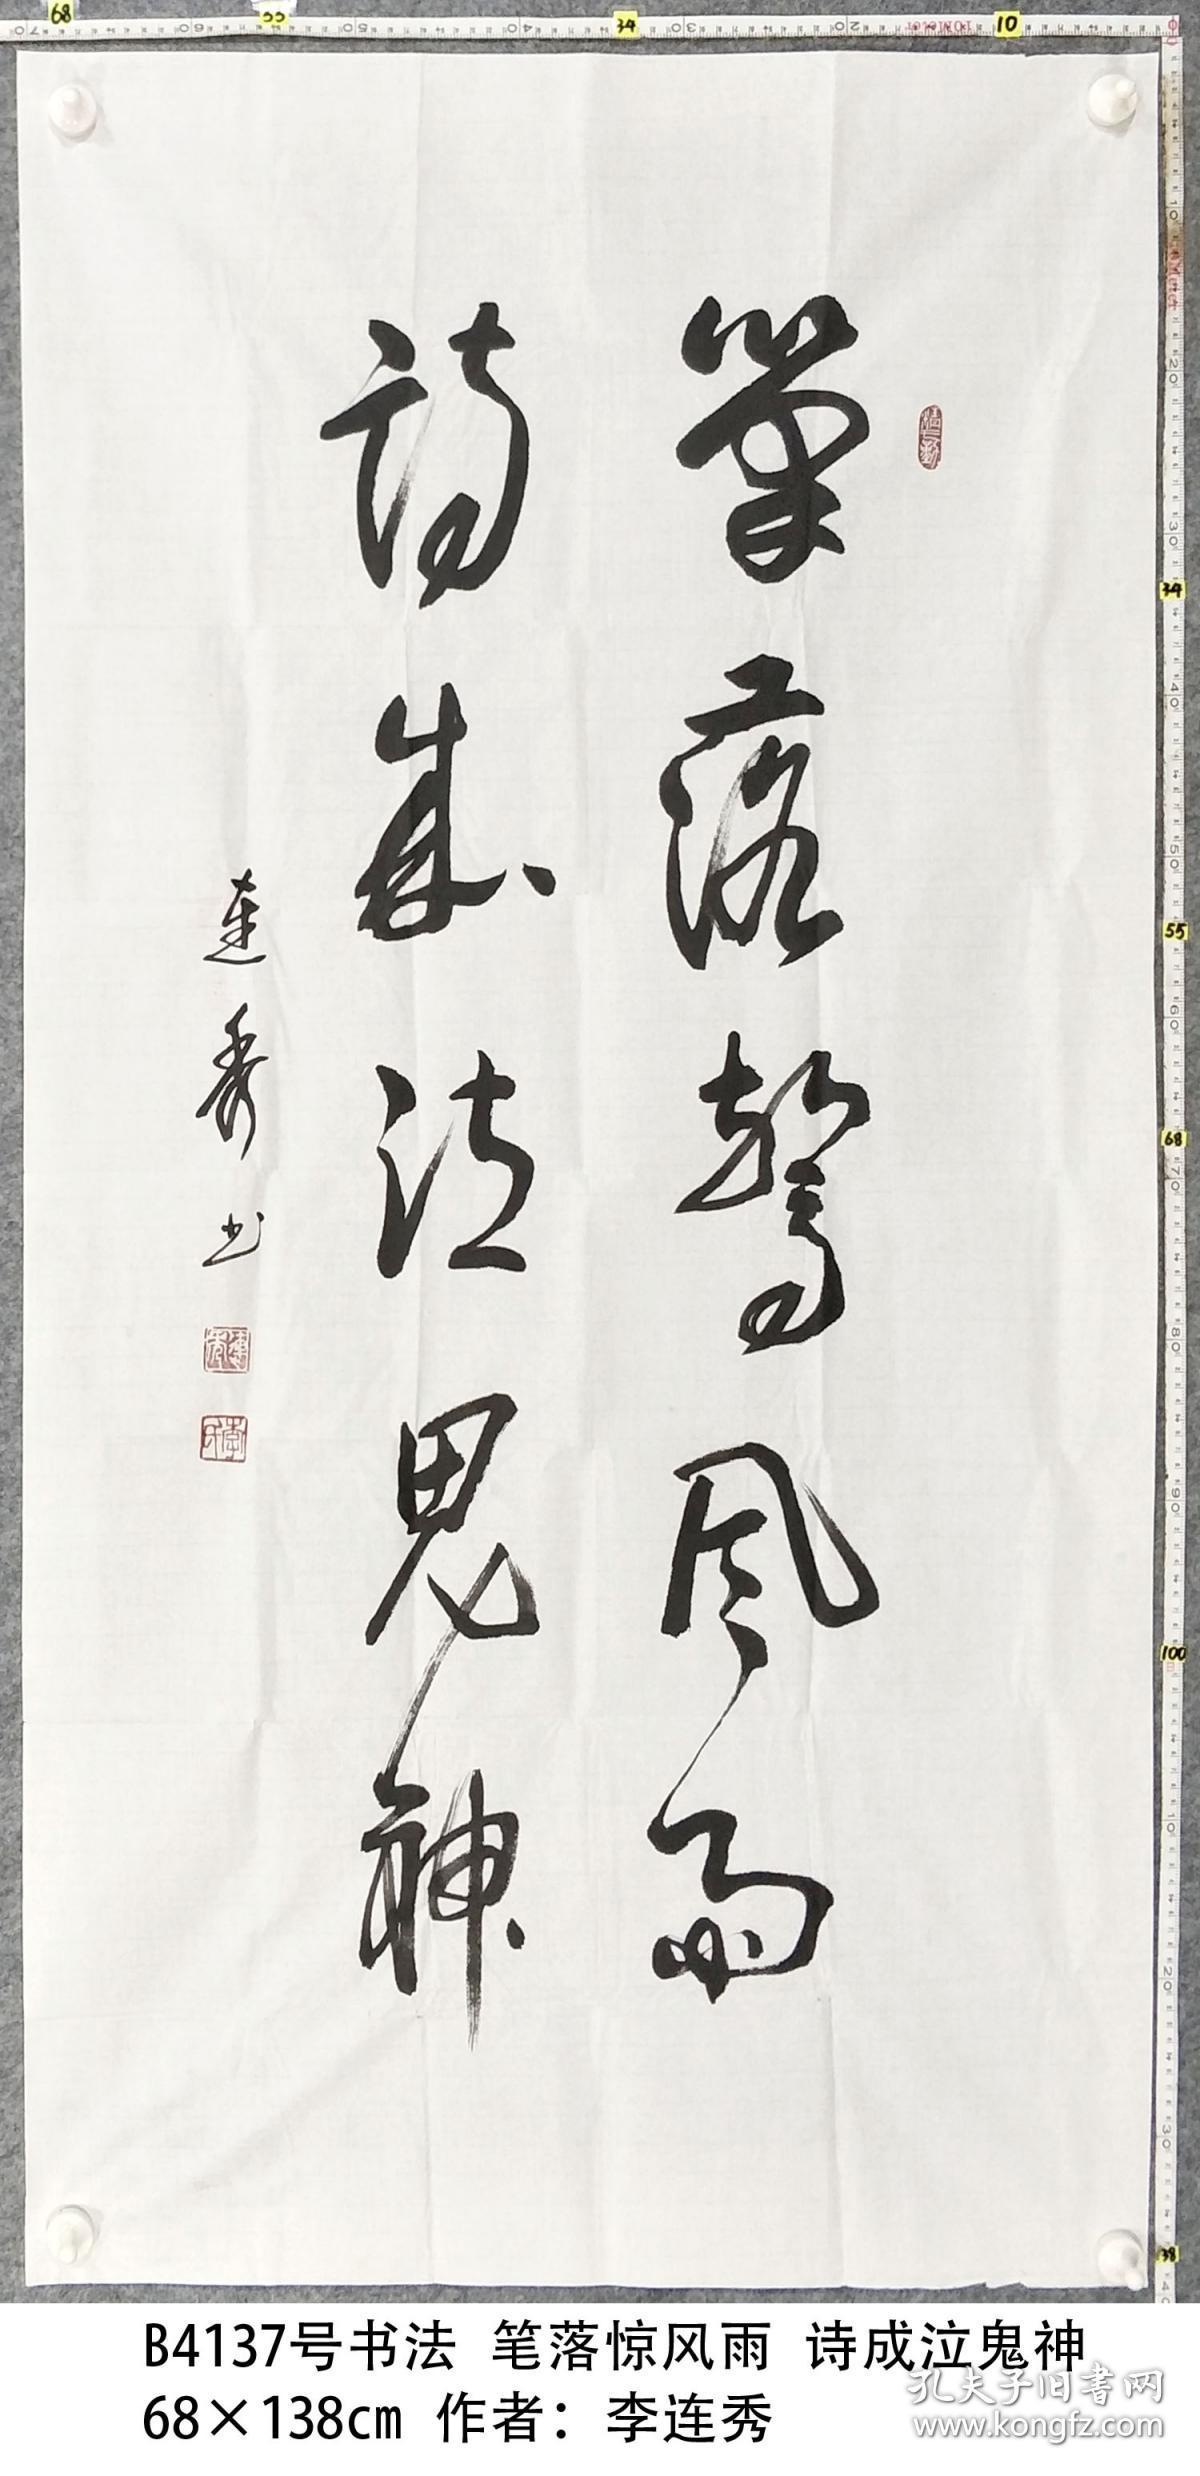 筆落驚風雨
詩成泣鬼神
連秀书
連秀
李氏
B4137号书法 笔落惊风雨 诗成泣鬼神
68×138cm 作者：李连秀
孔夫子旧书网
www.kongfz.com